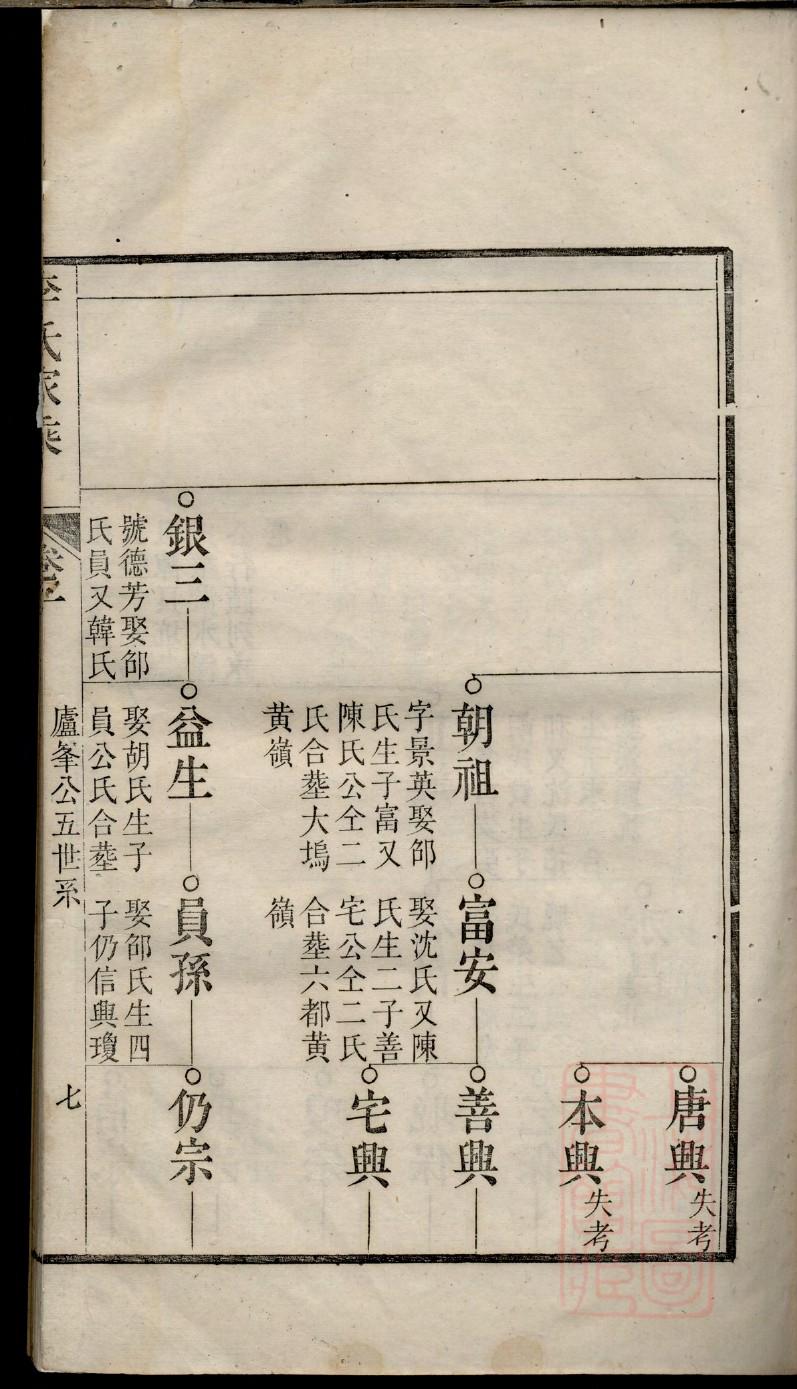 唐興
失考
本興
失考
朝祖
字景英娶邵
氏生子富又
陳氏公仝二
氏合塟大塢
黄嶺
富安
娶沈氏又陳
氏生二子善
宅公仝二氏
合塟六都黄
嶺
善興
宅興
銀三
號德芳娶邵
氏員又韓氏
益生
娶胡氏生子
員公氏合塟
員孫
娶邵氏生四
子仍信興瓊
仍宗
李氏家乘
卷之
廬峯公五世系
七